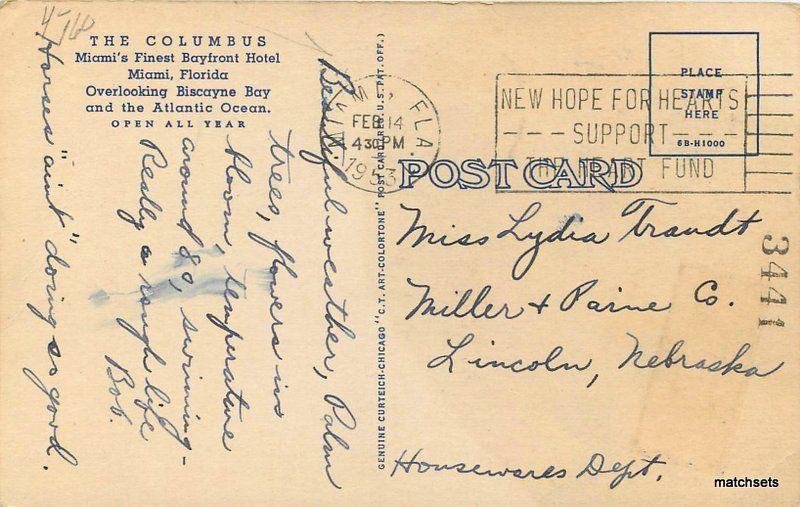 4-/60
THE COLUMBUS
Miami's Finest Bayfront Hotel
Miami, Florida
Overlooking Biscayne Bay
and the Atlantic Ocean.
OPEN ALL YEAR
Beautiful weather, Palm
trees, flowers in
bloom, temperature
around 80, swimming -
Really a rough life
Bob.
Horses "ain't" doing so good.
GENUINE CURTEICH-CHICAGO "C.T. ART-COLORTONE" POST CARD (REG. U.S. PAT. OFF.)
MIAMI, FLA.
FEB 14
4 30 PM
1953
NEW HOPE FOR HEARTS
--- SUPPORT ---
THE HEART FUND
PLACE
STAMP
HERE
6B-H1000
POST CARD
Miss Lydia Trandt
Miller & Paine Co.
Lincoln, Nebraska
Housewares Dept.
3441
matchsets